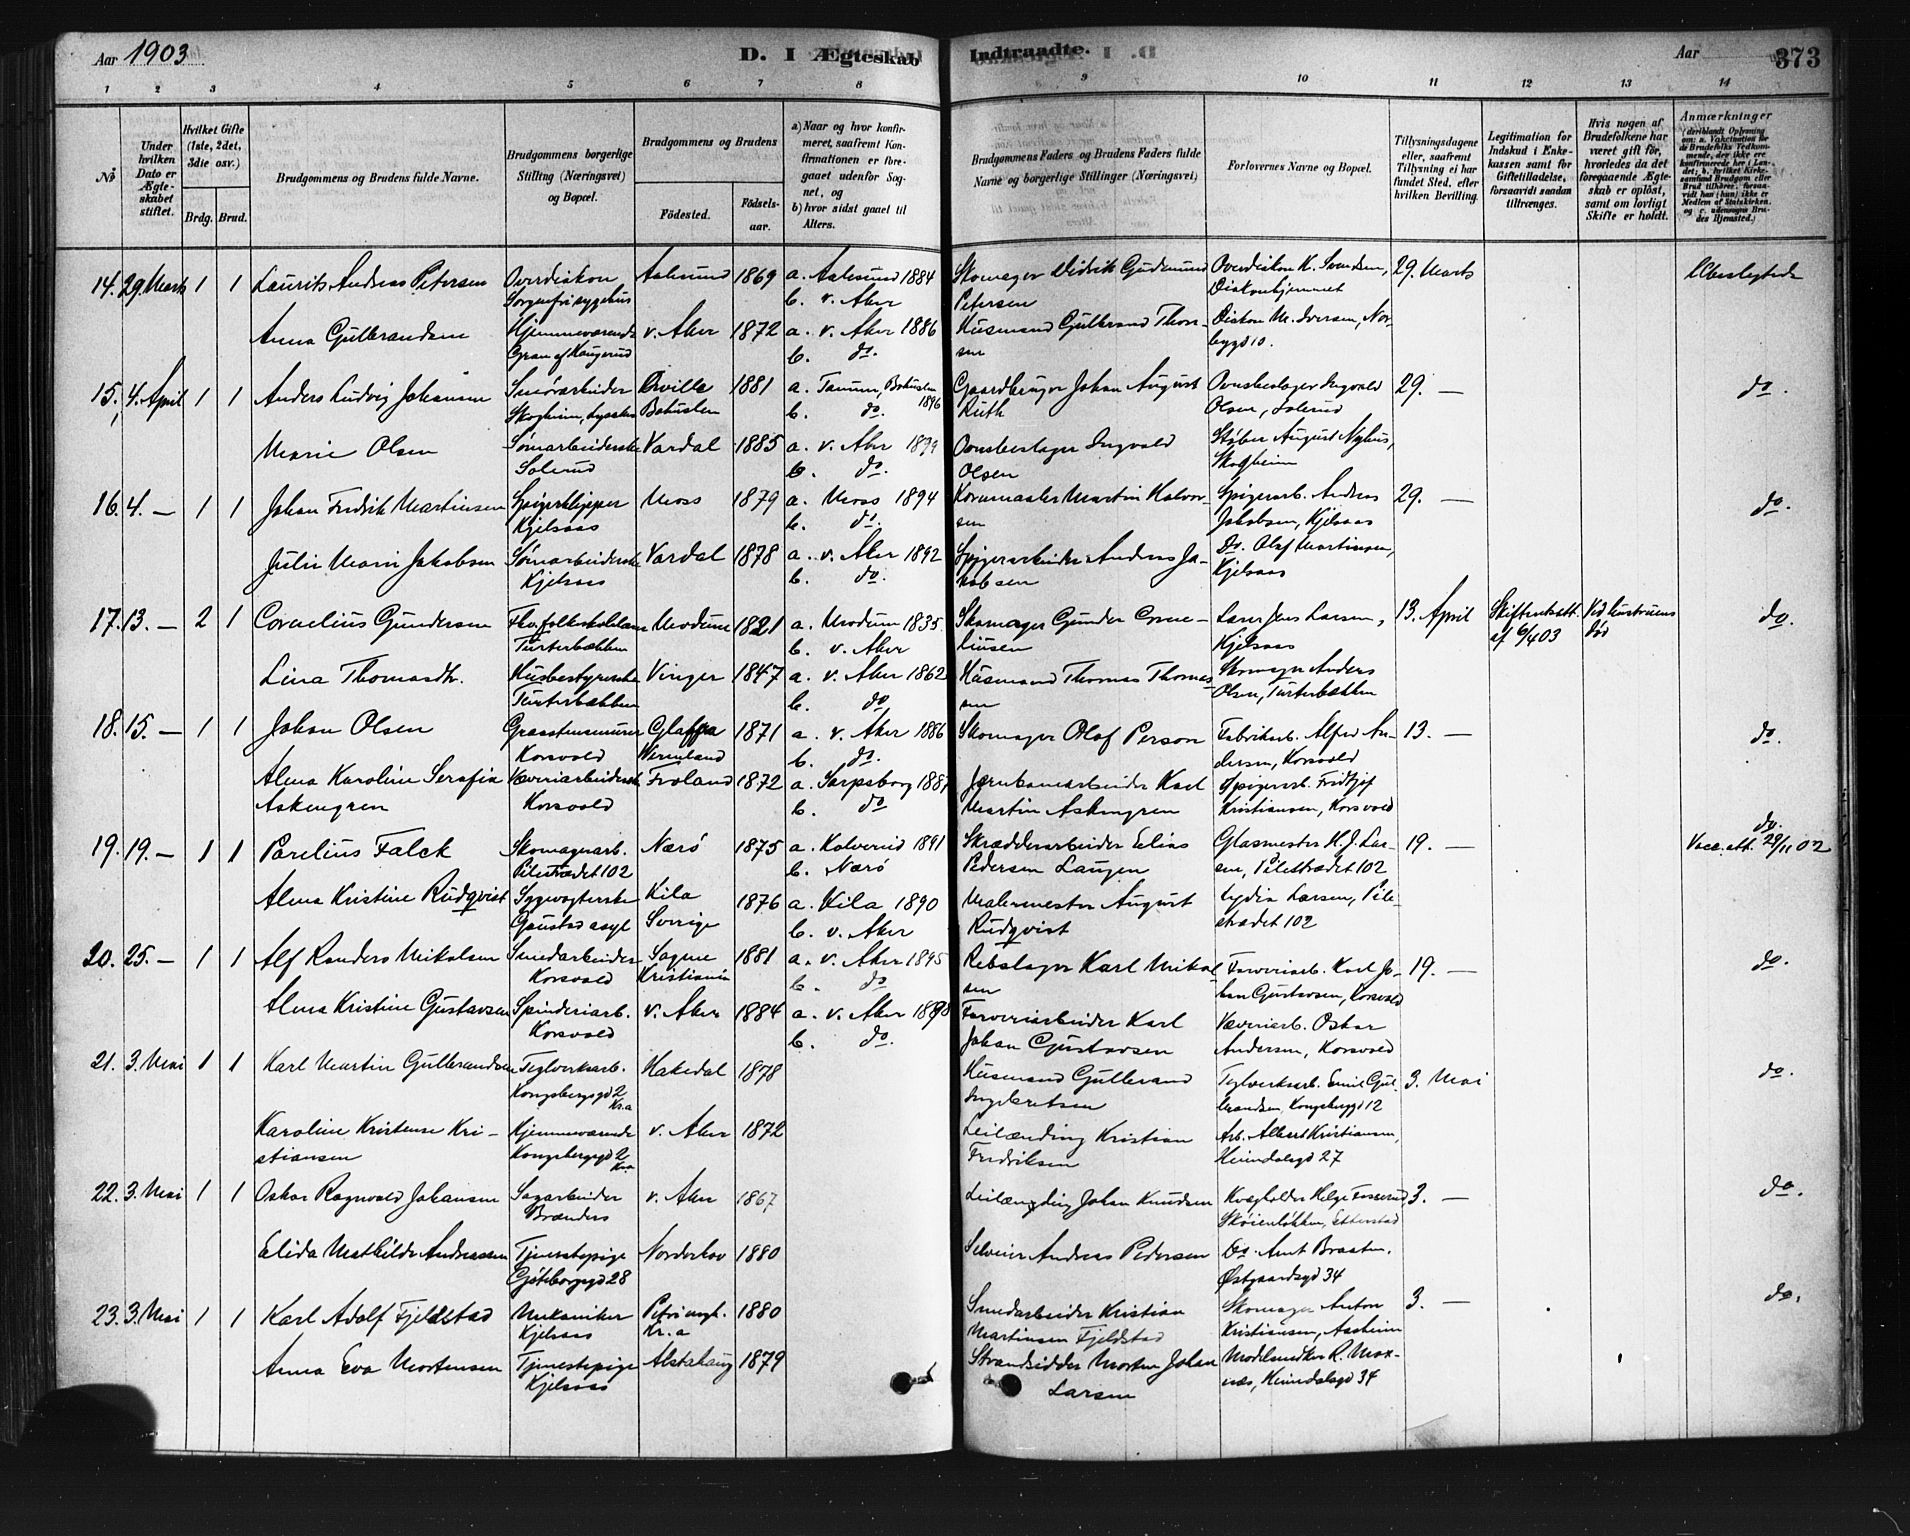 Aar 1903
D. I Ægteskab Indtraadte.
Aar
373
1 2 3 4 5 6 7 8 9 10 11 12 13 14
No
Under hvilken Dato er Ægteskabet stiftet.
Hvilket Gifte (1ste, 2det, 3die osv.)
Brdg. Brud.
Brudgommens og Brudens fulde Navne.
Brudgommens borgerlige Stilling (Næringsvei) og Bopæl.
Brudgommens og Brudens
Fødested.
Fødselsaar.
a) Naar og hvor konfirmeret, saafremt Konfirmationen er foregaaet udenfor Sognet, og
b) hvor sidst gaaet til Alters.
Brudgommens Faders og Brudens Faders fulde Navne og borgerlige Stillinger (Næringsvei)
Forlovernes Navne og Bopæl.
Tillysningsdagene eller, saafremt Tillysning ei har fundet Sted, efter hvilken Bevilling.
Legitimation for Indskud i Enkekassen samt for Giftetilladelse, forsaavidt saadan tiltrænges.
Hvis nogen af Brudefolkene har været gift før, hvorledes da det foregaaende Ægteskab er opløst, samt om lovligt Skifte er holdt.
Anmærkninger
14. 29. Marts 1 1 Laurits Andreas Petersen Overdiakon Sorgenfri sygehus Aalesund 1869 a. Aalesund 1884 b. v. Aker Skomager Didrik Gudmund Petersen Overdiakon K. Svendsen, Diakonhjemmet 29. Marts Ubeslægtede
Anna Gulbrandsen Hjemmeværende Gran af Haugerud v. Aker 1872 a. v. Aker 1886 b. do. Husmand Gulbrand Thorsen Diakon M. Iversen, Norbygd 10.
15. 4. April 1 1 Anders Ludvig Johansen Skogheim, 1881 a. Tanum, Bohuslen 1896 b. do. Gaardbruger Johan August Ruth Ovnsbeslager Ingvald Olsen, Solerud 29. — do.
Marie Olsen Sømarbeiderske Solerud Vardal 1885 a. v. Aker 1899 b. do. Ovnsbeslager Ingvald Olsen Støber August Nyhus, Skogheim
16. 4. — 1 1 Johan Fredrik Martinsen Spigerklipper Kjelsaas Moss 1879 a. Moss 1894 b. do. Kornmaaler Martin Halvorsen Spigerarb. Andreas Jakobsen, Kjelsaas 29. — do.
Julie Marie Jakobsen Sømarbeiderske Kjelsaas Vardal 1878 a. v. Aker 1892 b. do. Spigerarbeider Andreas Jakobsen Do. Olaf Martinsen, Kjelsaas
17. 13. — 2 1 Cornelius Gundersen Turterbækken Modum 1821 a. Modum 1835. b. v. Aker Skomager Gunder Corneliusen Lærer Jens Larsen, Kjelsaas 13. April Skifteratt. af 6/4 03 Ved hustruens død do.
Lina Thomasdtr. Husbestyrerske Turterbækken Vinger 1847 a. v. Aker 1862 b. do Husmand Thomas Thomassen Skomager Anders Olsen, Turterbækken
18. 15. — 1 1 Johan Olsen Graastensmurer Korsvold Glaffva Wermland 1871 a. v. Aker 1886 b. do. Skomager Olof Person Fabrikarb. Alfred Andersen, Korsvold 13. — do.
Alma Karoline Serafia Askengren Væveriarbeiderske Korsvold Froland 1872 a. Sarpsborg 1887 b. do Jernbanearbeider Karl Martin Askengren Spigerarb. Fridtjof Kristiansen, Korsvold
19. 19. — 1 1 Parelius Falck Skomagerarb. Pilestrædet 102 Nærö 1875 a. Kolvereid 1891 b. Nærö Skrædderarbeider Elias Pedersen Laugen Glasmester H. J. Larsen, Pilestrædet 102 19. — do. Vacc. att. 28/11 02
Alma Kristine Rudqvist Sygevogterske Gaustad asyl Kila Sverige 1876 a. Kila 1890 b. v. Aker Malermester August Rudqvist Lydia Larsen, Pilestrædet 102
20. 25. — 1 1 Alf Randers Mikalsen Smedarbeider Korsvold Sagene Kristiania 1881 a. v. Aker 1895 b. do Rebslager Karl Mikalsen Farveriarb. Karl Johan Gustavsen, Korsvold 19. — do.
Alma Kristine Gustavsen Spinderiarb. Korsvold v. Aker 1884 a. v. Aker 1898 b. do. Farveriarbeider Karl Johan Gustavsen Væveriarb. Oskar Andersen, Korsvold
21. 3. Mai 1 1 Karl Martin Gulbrandsen Teglverksarb. Kongsberggd 2 Kr.a Hakedal 1878 Husmand Gulbrand Ingebretsen Teglverksarb. Emil Gulbrandsen, Kongsberggd 12 3. Mai do.
Karoline Kristense Kristiansen Hjemmeværende Kongsberggd 2 Kr.a v. Aker 1872 Leilænding Kristian Fredriksen Arb. Albert Kristiansen, Heimdalsgd 27
22. 3. Mai 1 1 Oskar Ragnvald Johansen Sagarbeider Brænders v. Aker 1867 Leilænding Johan Knudsen Kvægholder Helge Fosserud, Skøienløkken, Etterstad 3. — do.
Elida Mathilde Andreassen Tjenestepige Göteborggd 28 Norderhov 1880 Selveier Andreas Pedersen Do. Amt Braaten, Østgaardsgd 34
23. 3. Mai 1 1 Karl Adolf Fjeldstad Mekaniker Kjelsaas Petri mgh. Kr.a 1880 Smedarbeider Kristian Martinsen Fjeldstad Skomager Anton Kristiansen, Aasheim 3. — do.
Anna Eva Mortensen Tjenestepige Kjelsaas Alstahaug 1879 Strandsidder Morten Johan Larsen Modelsnedker R. Moxnæs, Heimdalsgd 34